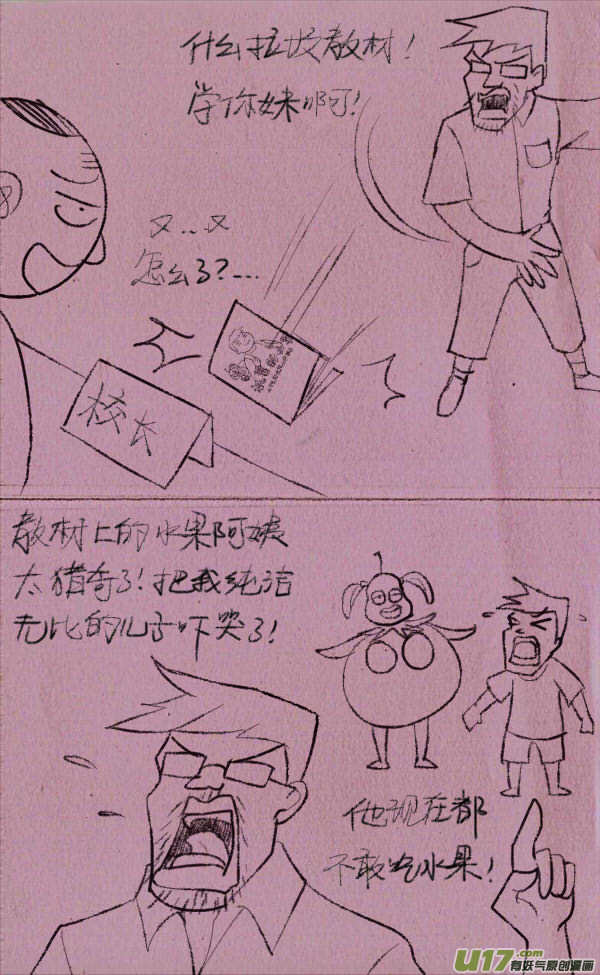 什么垃圾教材！
学你妹啊！
又…又
怎么了？…
校长
教材上的水果阿姨
太猎奇了！把我纯洁
无比的儿子吓哭了！
他现在都
不敢吃水果！
U17.com
有妖气原创漫画